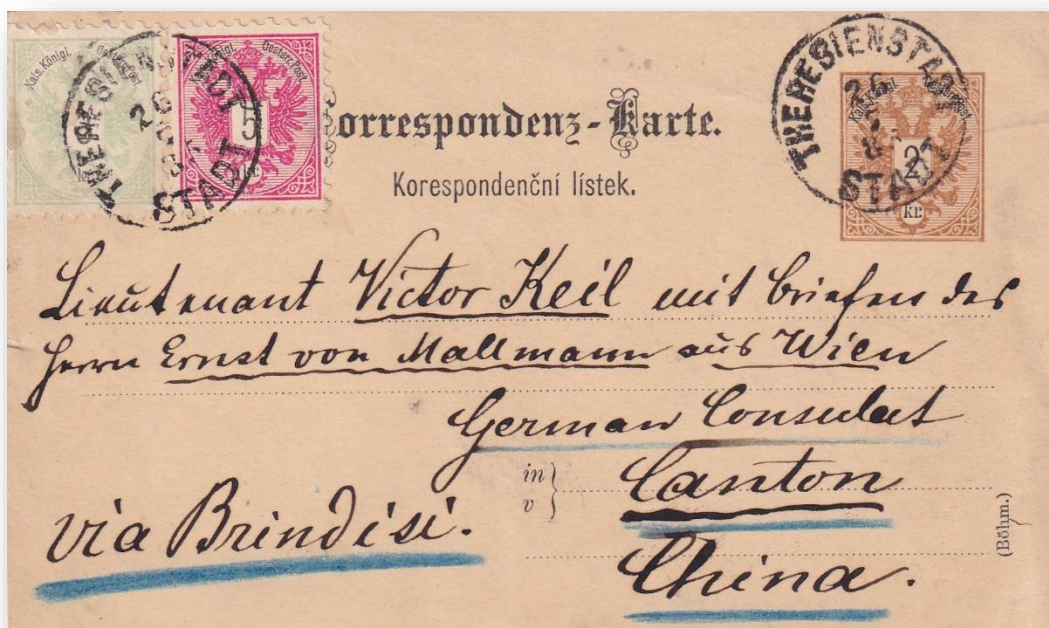 Kais. Königl. Oesterr. Post.
5
kr.
THERESIENSTADT
STADT
26
Correspondenz-Karte.
Korespondenční lístek.
THERESIENSTADT
STADT
26
2
kr.
Lieutenant Victor Keil mit Briefen des
Herrn Ernst von Mallmann aus Wien
German Consulat
in
v
Canton
via Brindisi.
China.
(Böhm.)